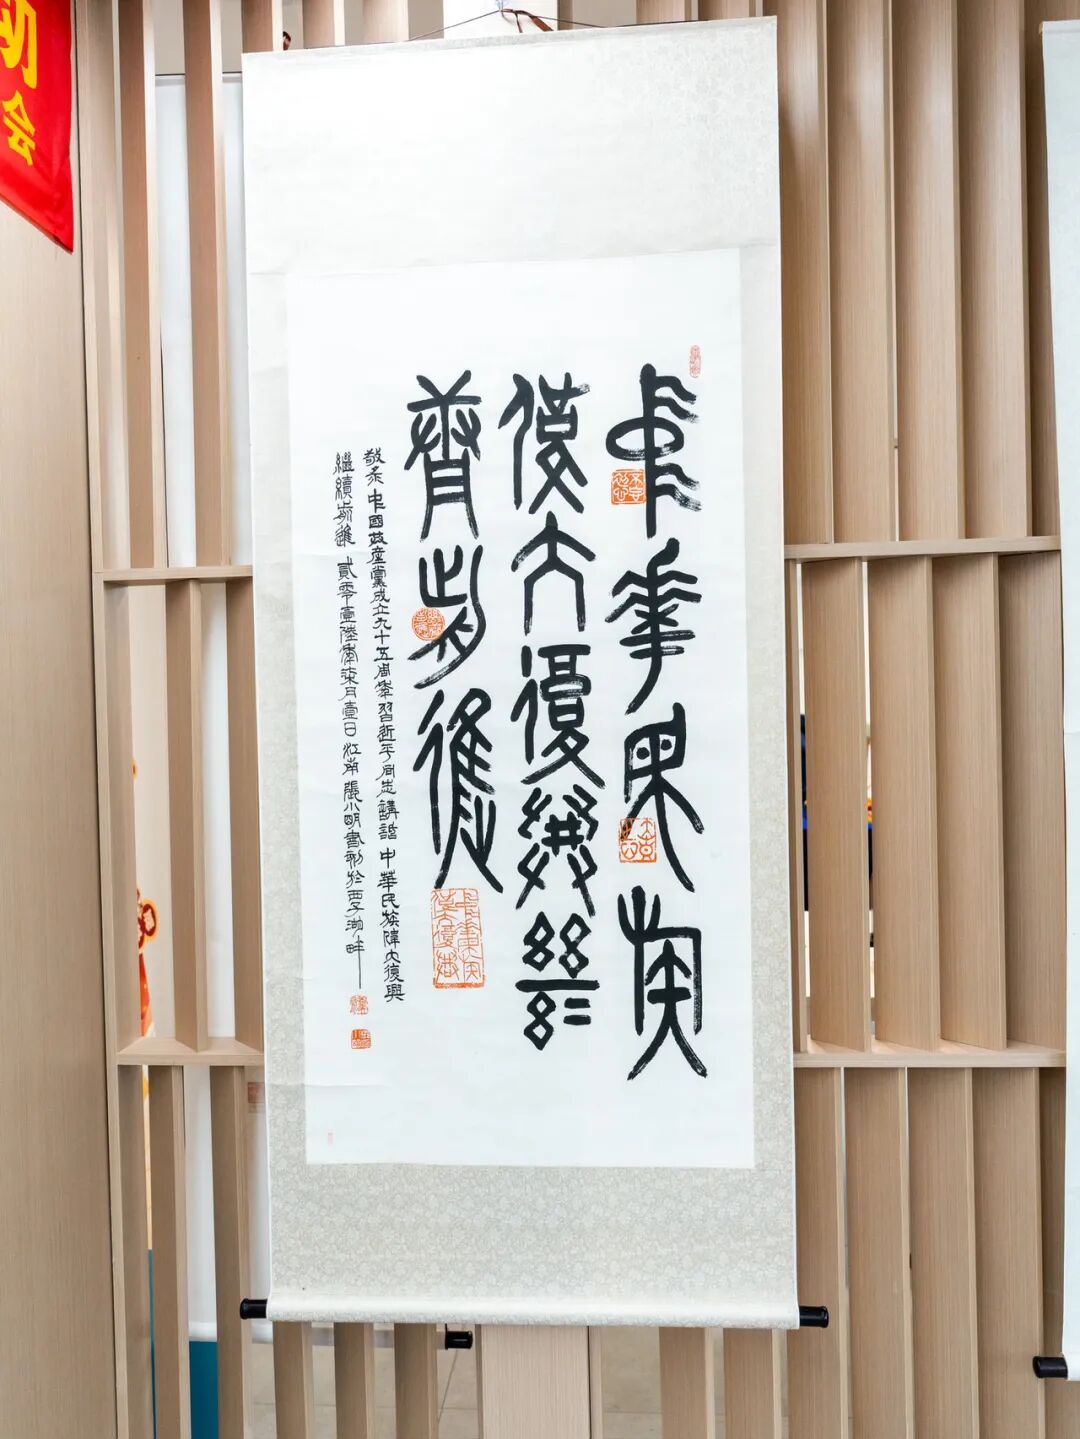 会
中華民族
偉大復興繼
續前進
敬录 中國共產黨成立九十五周年習近平同志講話 中華民族偉大復興
繼續前進 貳零壹陸年柒月壹日 江南張小明書於西子湖畔